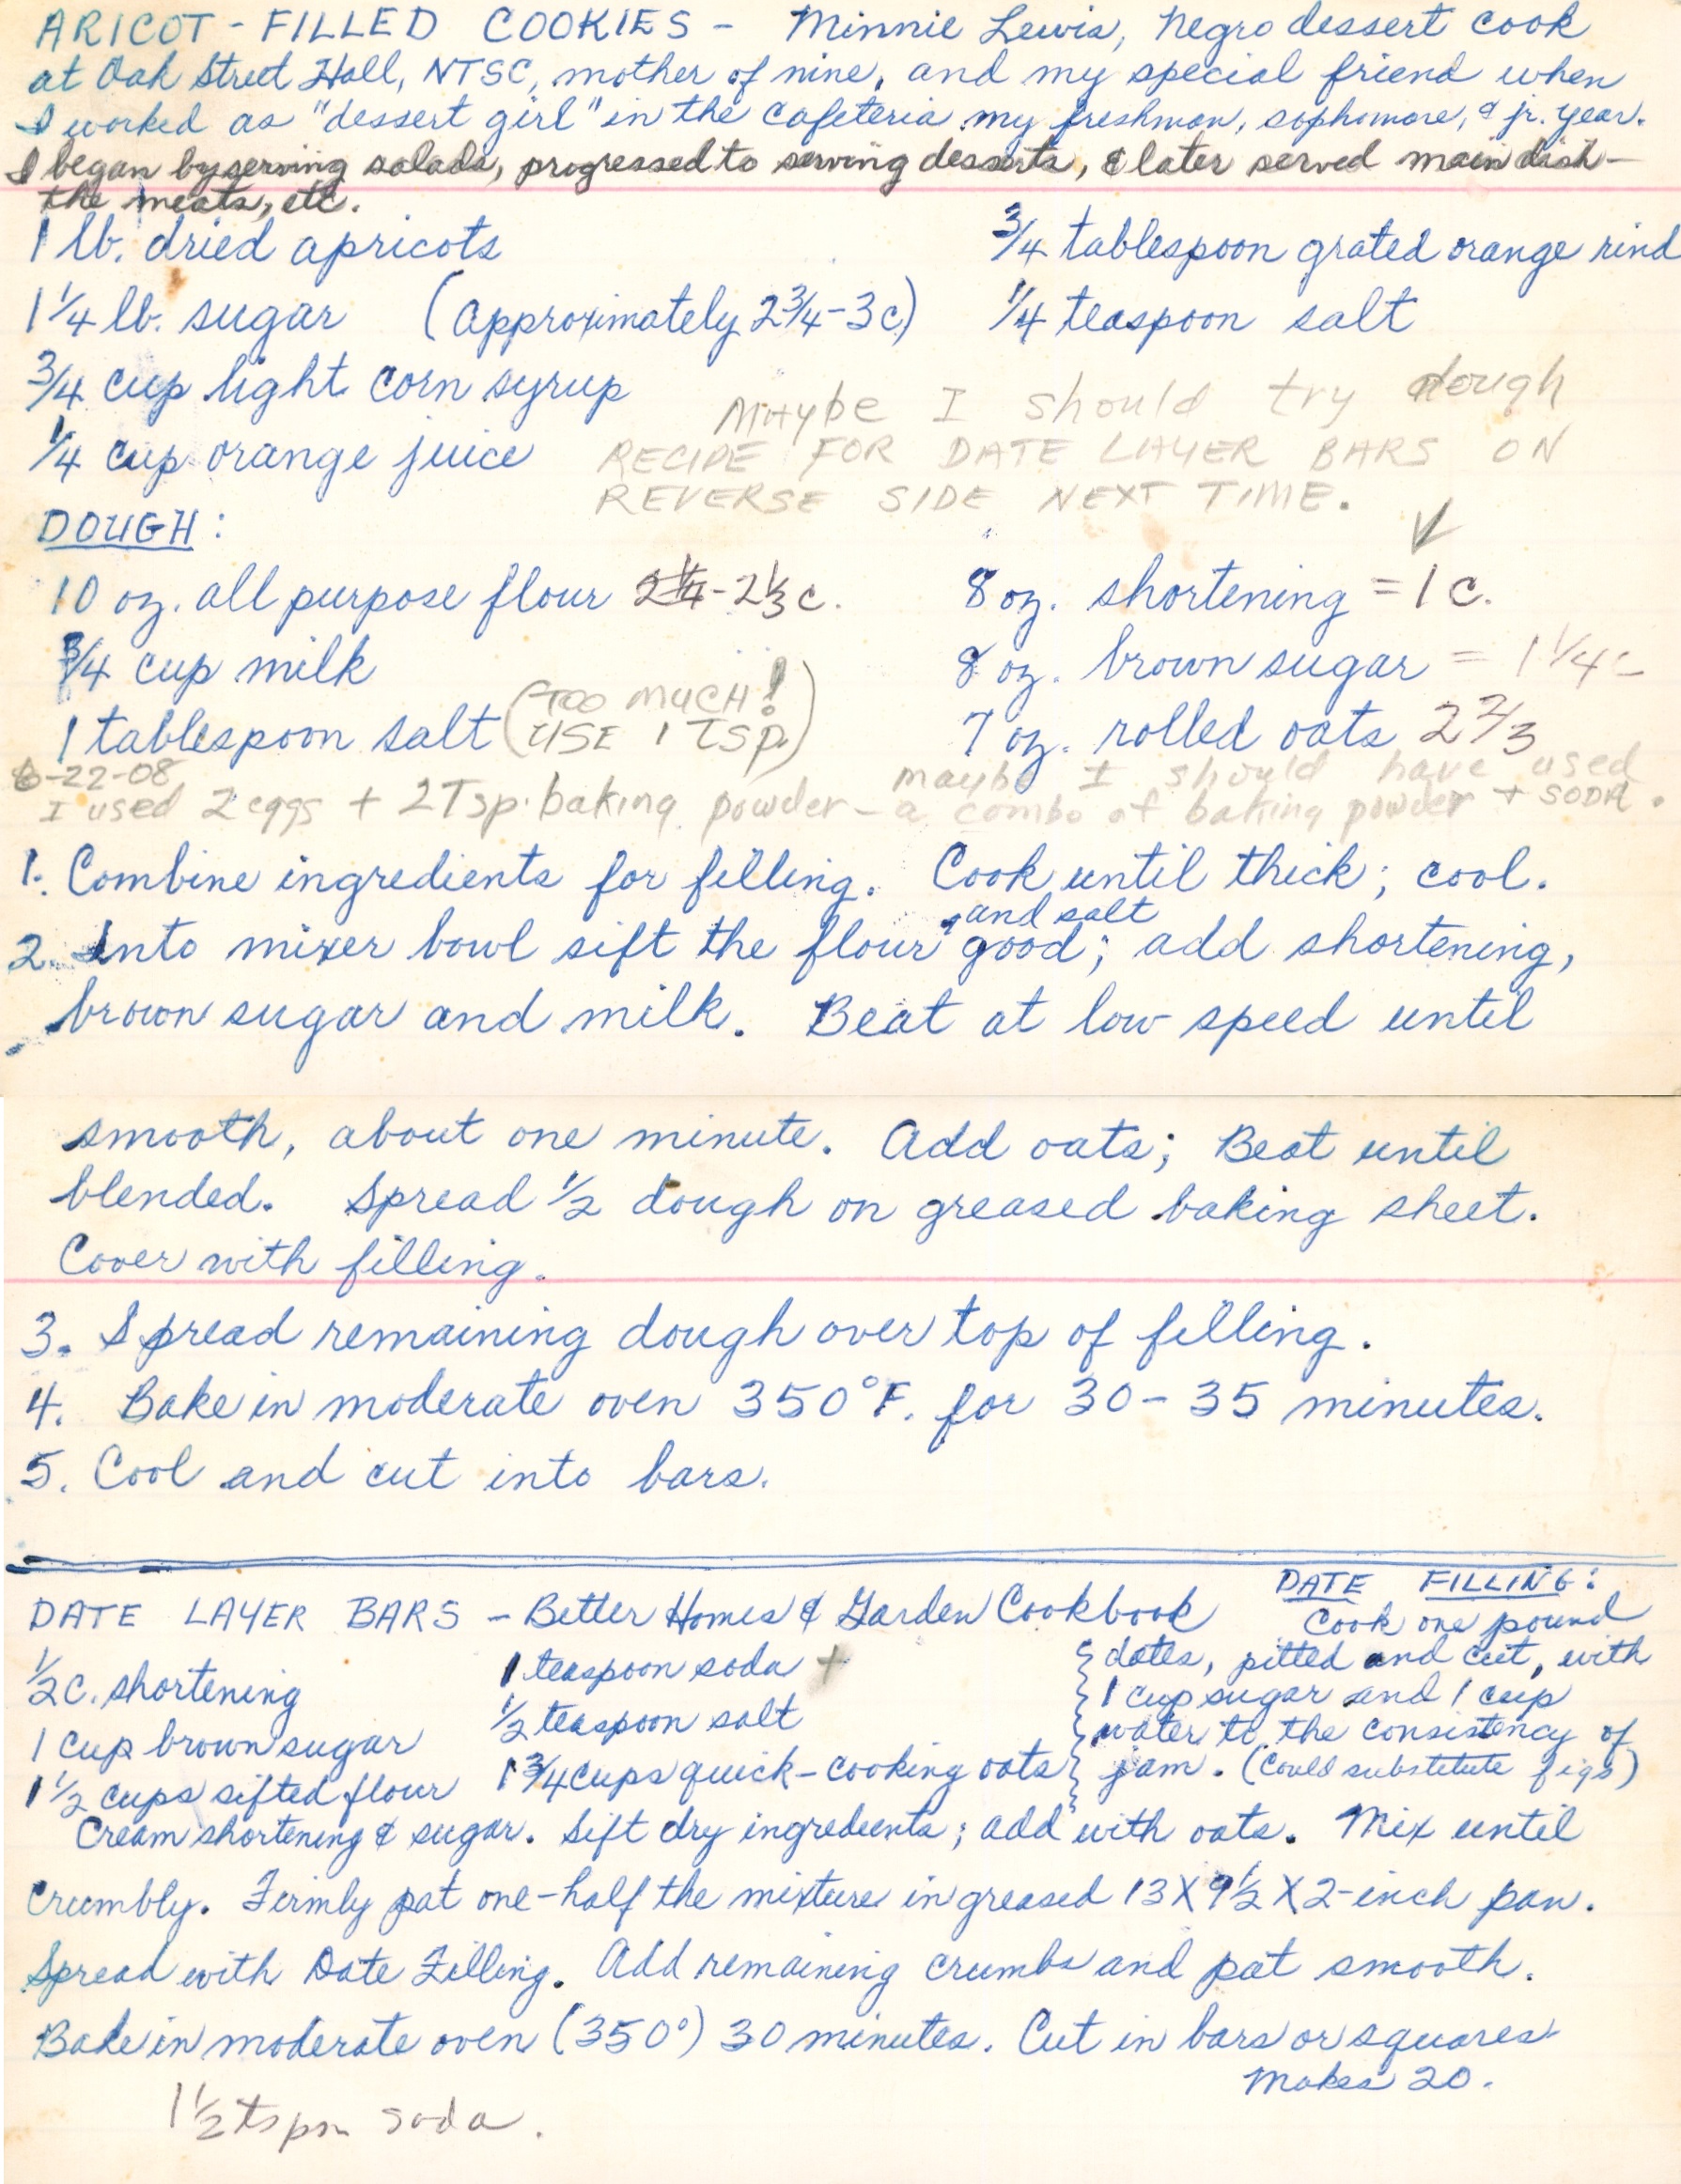 ARICOT-FILLED COOKIES - Minnie Lewis, Negro dessert cook
at Oak Street Hall, NTSC, mother of nine, and my special friend when
I worked as "dessert girl" in the cafeteria my freshman, sophomore, & jr. year.
I began by serving salads, progressed to serving desserts, & later served main dish—
the meats, etc.
1 lb. dried apricots
3/4 tablespoon grated orange rind
1 1/4 lb. sugar (Approximately 2 3/4-3 c.)
1/4 teaspoon salt
3/4 cup light corn syrup
1/4 cup orange juice
Maybe I should try dough
RECIPE FOR DATE LAYER BARS ON
REVERSE SIDE NEXT TIME.
DOUGH:
10 oz. all purpose flour 2 1/4-2 1/3 c.
8 oz. shortening = 1 c.
3/4 cup milk
8 oz. brown sugar = 1 1/4 c
1 tablespoon salt (TOO MUCH! USE 1 TSP.)
7 oz. rolled oats 2 2/3
6-22-08
I used 2 eggs + 2 Tsp. baking powder - maybe I should have used
a combo of baking powder + SODA.
1. Combine ingredients for filling. Cook until thick; cool.
2. Into mixer bowl sift the flour and salt good; add shortening,
brown sugar and milk. Beat at low speed until
smooth, about one minute. Add oats; Beat until
blended. Spread 1/2 dough on greased baking sheet.
Cover with filling.
3. Spread remaining dough over top of filling.
4. Bake in moderate oven 350°F. for 30-35 minutes.
5. Cool and cut into bars.
DATE LAYER BARS - Better Homes & Garden Cookbook
1/2 c. shortening
1 cup brown sugar
1 1/2 cups sifted flour
1 teaspoon soda +
1/2 teaspoon salt
1 3/4 cups quick-cooking oats
DATE FILLING:
Cook one pound
dates, pitted and cut, with
1 cup sugar and 1 cup
water to the consistency of
jam. (Could substitute figs)
Cream shortening & sugar. Sift dry ingredients; add with oats. Mix until
crumbly. Firmly pat one-half the mixture in greased 13 X 9 1/2 X 2-inch pan.
Spread with Date Filling. Add remaining crumbs and pat smooth.
Bake in moderate oven (350°) 30 minutes. Cut in bars or squares
Makes 20.
1 1/2 tspn soda.